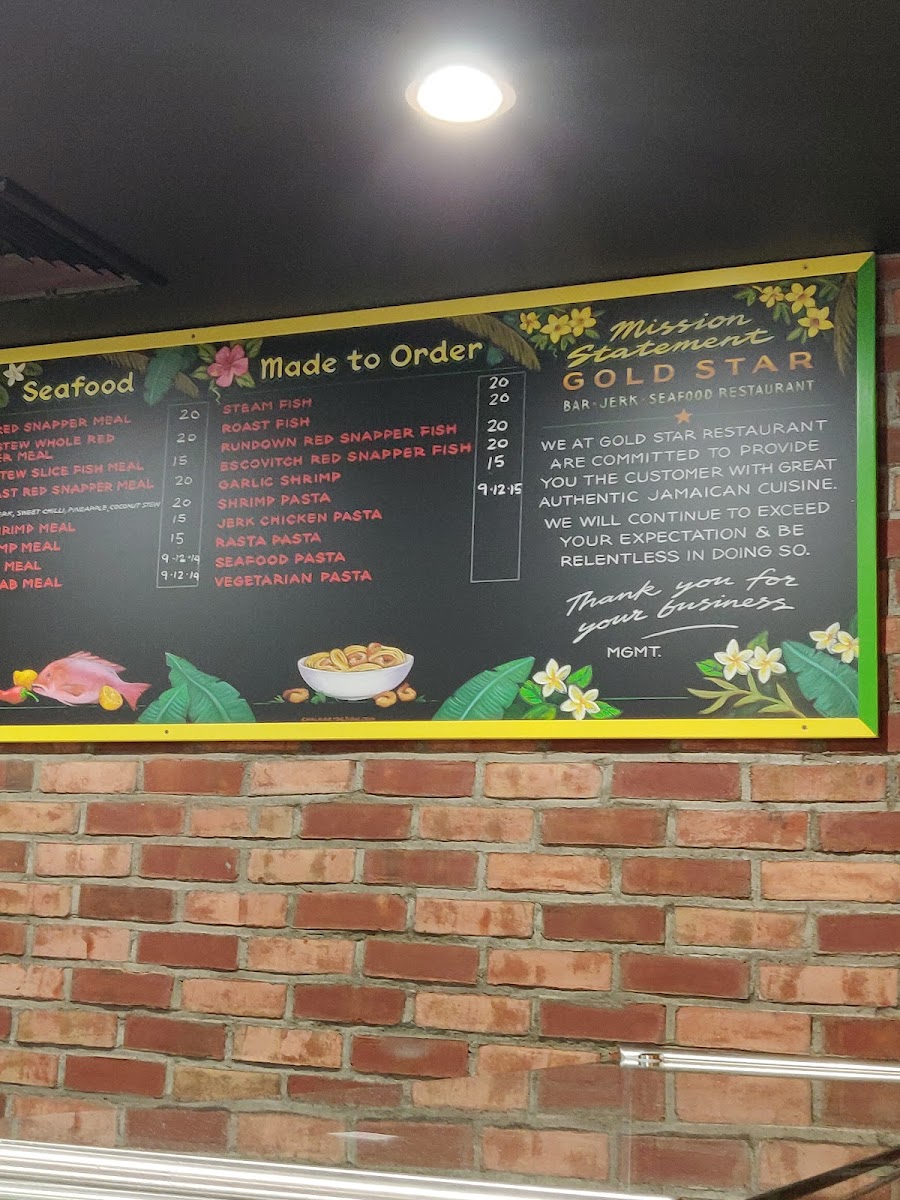 Seafood
RED SNAPPER MEAL 20
STEW WHOLE RED
MEAL 20
STEW SLICE FISH MEAL 15
RED SNAPPER MEAL 20
SWEET CHILLI, PINEAPPLE, COCONUT STEW 20
MEAL 15
MEAL 15
MEAL 9·12·14
MEAL 9·12·14
Made to Order
STEAM FISH 20
ROAST FISH 20
RUNDOWN RED SNAPPER FISH 20
ESCOVITCH RED SNAPPER FISH 20
GARLIC SHRIMP 15
SHRIMP PASTA 9·12·15
JERK CHICKEN PASTA
RASTA PASTA
SEAFOOD PASTA
VEGETARIAN PASTA
Mission
Statement
GOLD STAR
BAR·JERK·SEAFOOD RESTAURANT
WE AT GOLD STAR RESTAURANT
ARE COMMITTED TO PROVIDE
YOU THE CUSTOMER WITH GREAT
AUTHENTIC JAMAICAN CUISINE.
WE WILL CONTINUE TO EXCEED
YOUR EXPECTATION & BE
RELENTLESS IN DOING SO.
Thank you for
your business
MGMT.